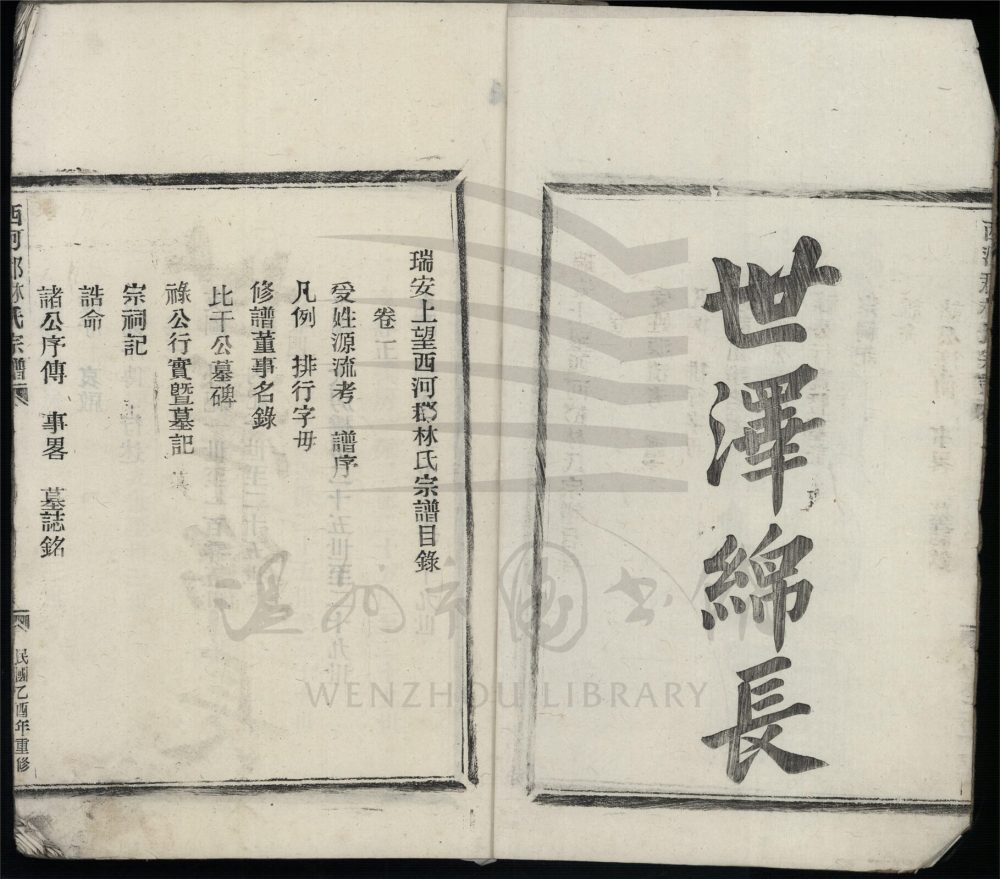 世澤綿長
瑞安上望西河郡林氏宗譜目錄
卷正
受姓源流考 譜序
凡例 排行字母
修譜董事名錄
比干公墓碑
祿公行實曁墓記
宗祠記
誥命
諸公序傳 事畧 墓誌銘
西河郡林氏宗譜
民國乙酉年重修
温州市图书馆
WENZHOU LIBRARY